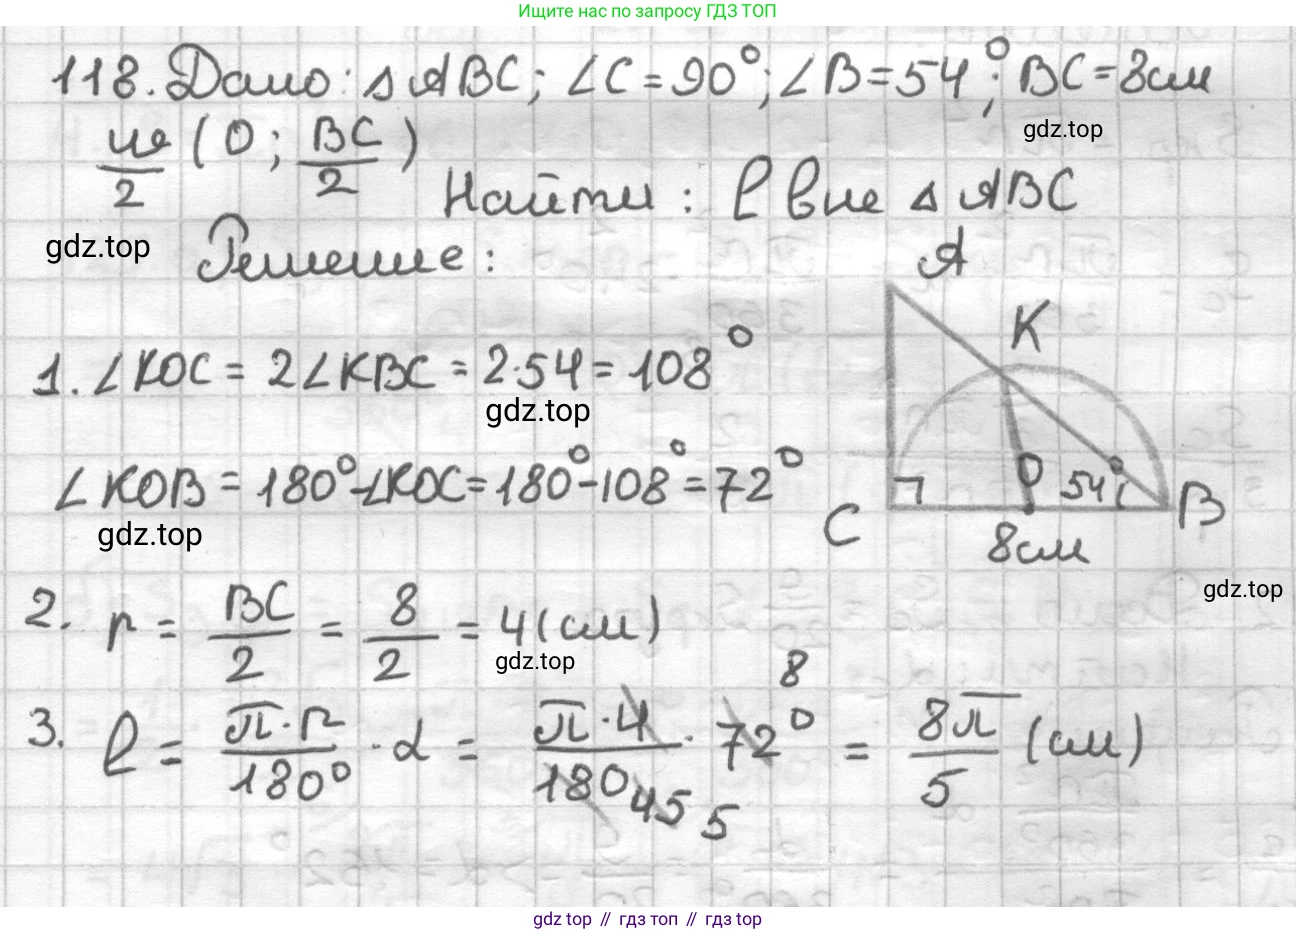 Ищите нас по запросу ГДЗ ТОП
118. Дано: △ ABC; ∠C = 90°; ∠B = 54°; BC = 8см
gdz.top
ω/2 (O; BC/2)
Найти: ℓ вне △ ABC
gdz.top
Решение:
A
K
1. ∠KOC = 2∠KBC = 2·54 = 108°
gdz.top
∠KOB = 180° - ∠KOC = 180° - 108° = 72°
O 54°
C B
gdz.top
8см
gdz.top
2. r = BC/2 = 8/2 = 4 (см)
gdz.top
3. ℓ = π·r/180° · α = π·4/180 · 72° = 8π/5 (см)
8
45 5
gdz top // гдз топ // gdz top